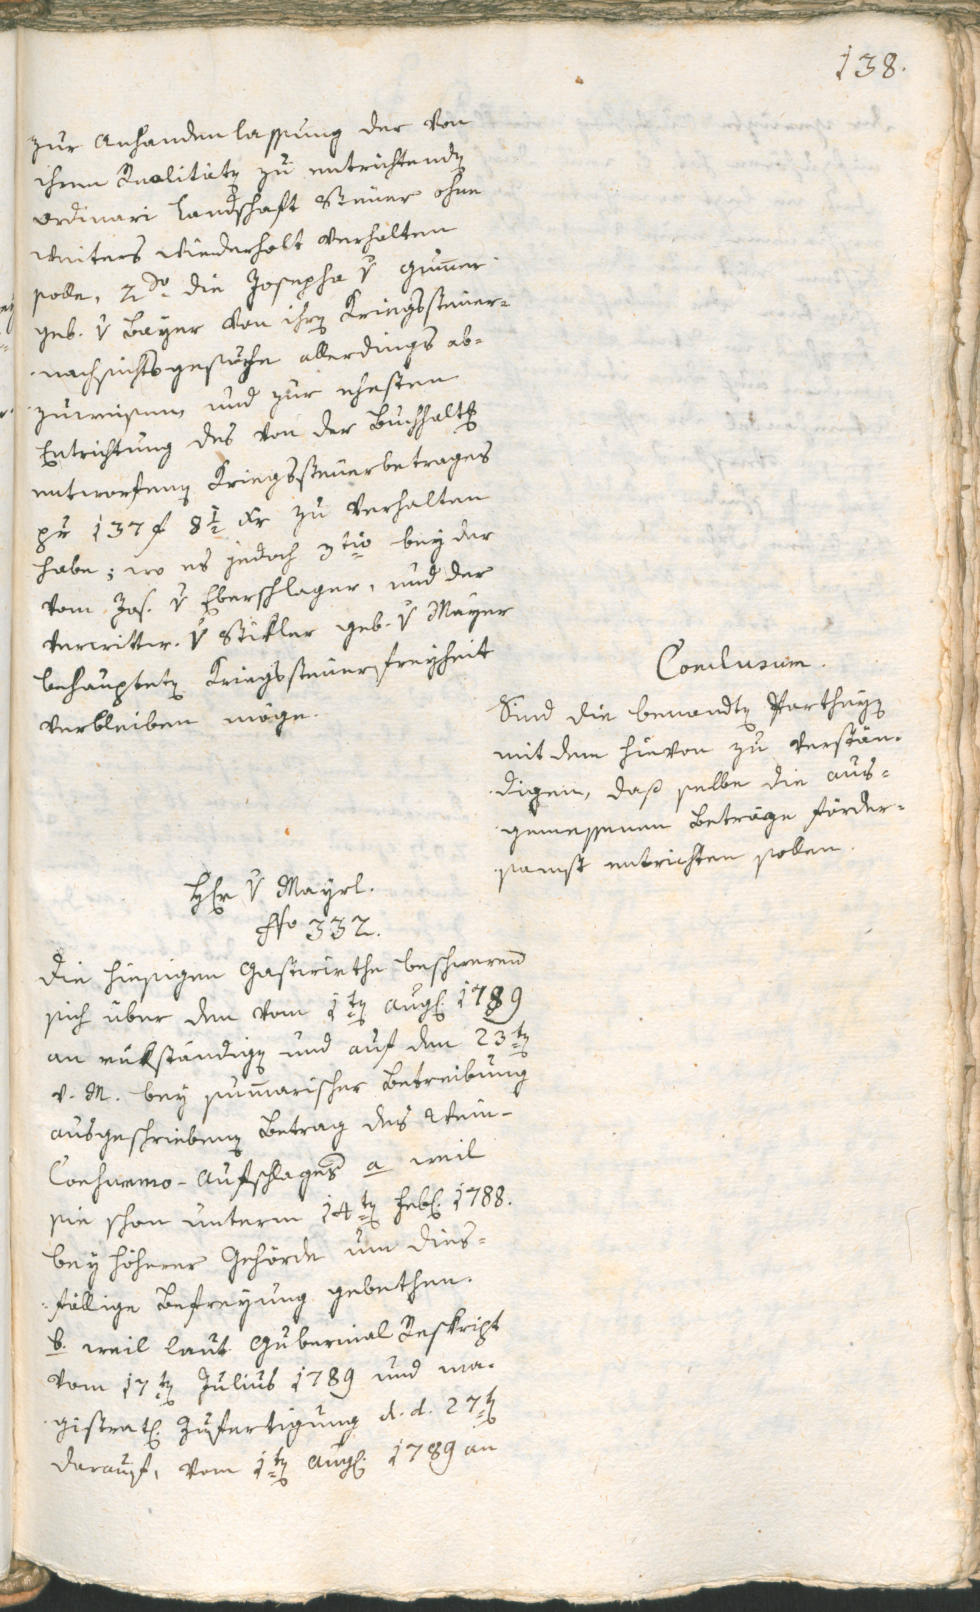 138.
zur Anhandenlassung der von
ihren Realitäten zu entrichtenden
ordinari Landschaft Steuer ohne
weiters wiederholt verhalten
solle, 2do die Josepha v Gumer
geb. v Bayer von ihren Kriegssteuer=
nachsichtsgesuche allerdings ab=
zuweisen, und zur ehesten
Entrichtung des von der Buchhalterey
entworfenen Kriegssteuerbetrages
pr 137 f 8 1/2 xr zu verhalten
habe; wo es jedoch 3tio bey der
vom Jos. v Eberschlager, und der
verwittw. v Stikler geb. v Mayer
behaupteten Kriegssteuerfreyheit
verbleiben möge.
Conclusum.
Sind die benandten Partheyen
mit dem hievon zu verstän=
digen, daß selbe die aus=
gemessenen Beträge förder=
samst entrichten sollen.
Hr v Mayrl.
ffo 332.
Die hiesigen Gastwirthe beschweren
sich über den vom 1ten Augl. 1789
an rükständigen und auf den 23ten
v. M. bey sumarischer Betreibung
ausgeschriebenen Betrag des Wein-
Consumo-Aufschlages a weil
sie schon unterm 14ten Febl. 1788.
bey höherer Gehörde um dies=
fällige Befreyung gebethen.
b. weil laut Gubernial Reskript
vom 17ten Julius 1789 und ma=
gistratl. Zufertigung d. d. 27ten
darauf, vom 1ten Augl. 1789 an